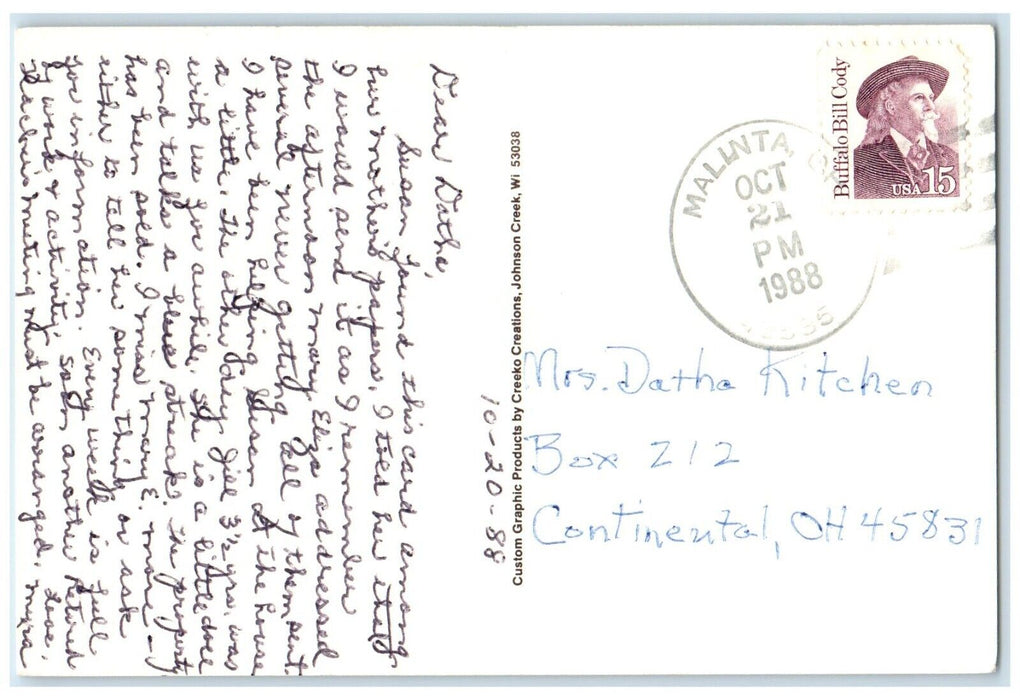 Dear Datha,
Susan found this card among
her mother's papers. I told her that
I would send it as I remember
the afternoon Mary Eliz addressed
several never getting all of them sent.
I have been helping Susan at the house
a little. The other day Jill 3½ yrs. was
with us for awhile. She is a little doll
and talks a blue streak. The property
has been sold. I miss Mary E. more -
either to tell her something or ask
for information. Every week is full
of work & activity, soon another Retired
Teachers meeting must be arranged. Love,
Myra
10-20-88
Custom Graphic Products by Creeko Creations, Johnson Creek, Wi 53038
MALINTA,
OCT
21
PM
1988
Buffalo Bill Cody
USA 15
Mrs. Datha Kitchen
Box 212
Continental, OH 45831